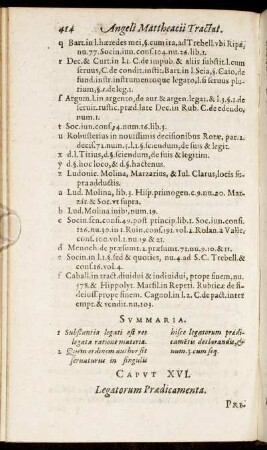 414 Angeli Mattheacii Tractat.
q Bart. in l. hæredes mei, §. cum ita, ad Trebell. vbi Ripa,
nu. 77. Socin. iun. conf. 104. nu. 14. lib. 1.
r Dec. & Curt. in l. 1. C. de impub. & aliis substit. l. cum
seruus, C. de condit. instit. Bart. in l. Seia, §. Caio, de
fund. instr. instrumentoque legato, l. si seruus plu
rium, §. 1. de leg. 1.
s Argum. l. in argento, de aur & argen. legat. & l. 3. §. 1. de
seruit. rustic. præd. late Dec. in Rub. C. de edendo,
num. 1.
t Soc. iun. cons. 74. num. 16. lib. 3.
u Robusterius in nouissimis decisionibus Rotæ, par. 2.
decis. 71. num. 1. l. 1. §. sciendum, de suis & legit.
x d. l. Titius, d. §. sciendum, de suis & legitim.
y d. §. hoc loco, & d. §. hactenus.
z Ludouic. Molina, Marzarius, & Iul. Clarus, locis su
pra adductis.
a Lud. Molina, lib. 3. Hisp. primogen. c. 9. nu. 20. Mar.
zar. & Soc. vt supra.
b Lud. Molina inibi, num. 19.
c Socin. sen. cons. 49. post princip. lib. 1. Soc. iun. cons.
125. nu. 30. in 1. Ruin. cons. 191. vol. 2. Rolan. a Valle,
cons. 100. vol. 1. nu. 19. & 21.
d Menoch. de præsumt. 2. præsumt. 71. nu. 9. 10. & 11.
e Socin. in l. 1. §. sed & quoties, nu. 4. ad S. C. Trebell. &
cons. 16. vol. 4.
f Caball. in tract. diuidui & indiuidui, prope finem, nu.
378. & Hippolyt. Marsil. in Repeti. Rubricæ de fi
deiuss. prope finem. Cagnol. in l. 2. C. de pact. inter
empt. & vendit. nu. 103.
SVMMARIA.
1 Substantia legati est res
legata ratione materiæ.
2 Quem ordinem author sit
seruaturus in singulis
hisce legatorum prædi-
camētis declarandis, &
num. 3. cum seq.
CAPVT XVI.
Legatorum Prædicamenta.
PRÆ-